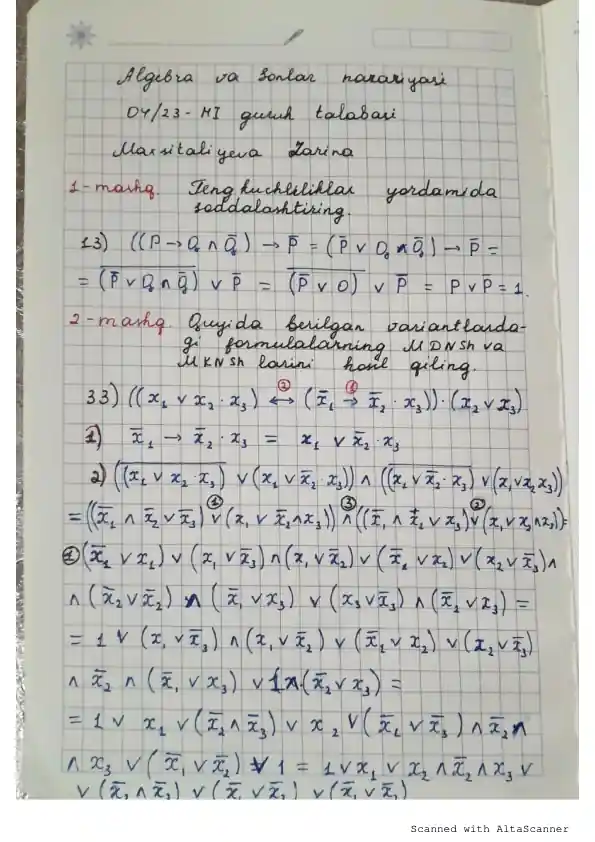 Algebra va Sonlar nazariyasi
DY/23-MI guruh talabasi
Maxsitaliyeva Zarina
1-mashq. Teng kuchliliklar yordamida
soddalashtiring.
13) ((P → Q ∧ Q̄) → P̄ = (P̄ ∨ Q ∧ Q̄) → P̄ =
= \overline{(P̄ ∨ Q ∧ Q̄)} ∨ P̄ = \overline{(P̄ ∨ 0)} ∨ P̄ = P ∨ P̄ = 1.
2-mashq. Quyida berilgan variantlarda-
gi formulalarning MDNSh va
MKNSh larini hosil qiling.
33) ((x₁ ∨ x₂ · x₃) ↔ (x̄₁ → x̄₂ · x₃)) · (x₂ ∨ x₃)
1) x̄₁ → x̄₂ · x₃ = x₁ ∨ x̄₂ · x₃
2) (\overline{(x₁ ∨ x₂ · x₃)} ∨ (x₁ ∨ x̄₂ · x₃)) ∧ (\overline{(x₁ ∨ x̄₂ · x₃)} ∨ (x₁ ∨ x₂x₃))
= ((x̄₁ ∧ x̄₂ ∨ x̄₃) ∨ (x₁ ∨ x̄₂ ∧ x₃)) ∧ ((x̄₁ ∧ x₂ ∨ x₃) ∨ (x₁ ∨ x₂ ∧ x₃)) =
① (x̄₁ ∨ x₁) ∨ (x₁ ∨ x̄₃) ∧ (x₁ ∨ x̄₂) ∨ (x̄₁ ∨ x₂) ∨ (x₂ ∨ x̄₃) ∧
∧ (x̄₂ ∨ x̄₂) ∧ (x̄₁ ∨ x₃) ∨ (x₃ ∨ x̄₃) ∧ (x̄₂ ∨ x₃) =
= 1 ∨ (x₁ ∨ x̄₃) ∧ (x₁ ∨ x̄₂) ∨ (x̄₁ ∨ x₂) ∨ (x₂ ∨ x̄₃)
∧ x̄₂ ∧ (x̄₁ ∨ x₃) ∨ 1 ∧ (x̄₂ ∨ x₃) =
= 1 ∨ x₁ ∨ (x̄₂ ∧ x̄₃) ∨ x₂ ∨ (x̄₁ ∨ x̄₃) ∧ x̄₂ ∧
∧ x₃ ∨ (x̄₁ ∨ x̄₂) ∨ 1 = 1 ∨ x₁ ∨ x₂ ∧ x̄₂ ∧ x₃ ∨
Scanned with AltaScanner